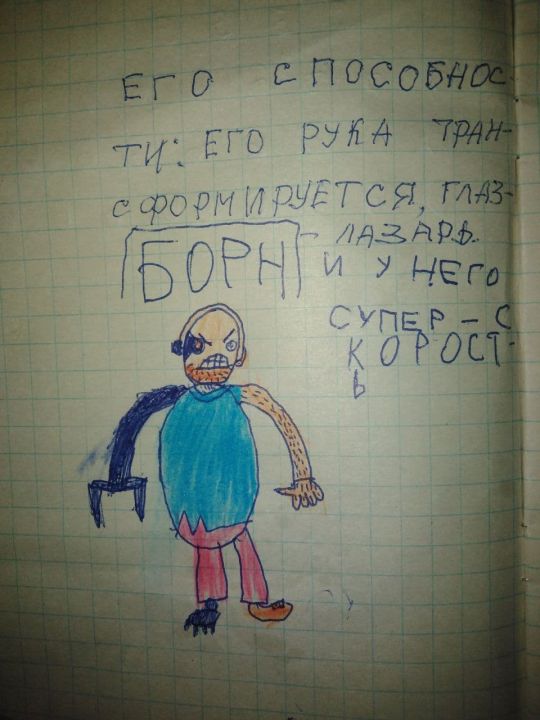 ЕГО СПОСОБНОС-
ТИ: ЕГО РУКА ТРАН-
СФОРМИРУЕТСЯ, ГЛАЗ-
ЛАЗАРЬ.
БОРН
И У НЕГО
СУПЕР-С
КОРОСТ-
Ь